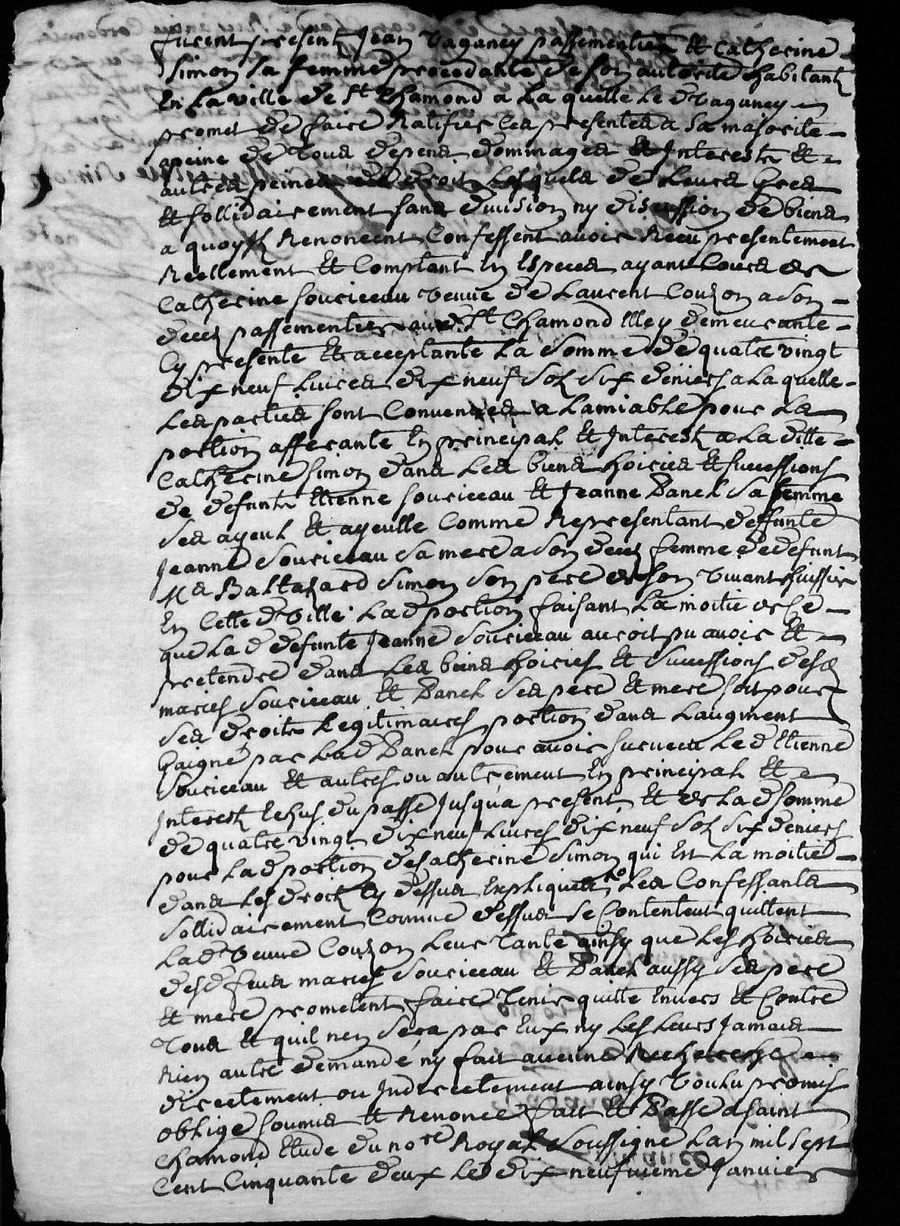 furent presents Jean Vaganey passementier et Catherine
Simon sa femme procedante de son autorité habitants
En La ville de St Chamond a La quelle Le d Vaganey
promet de faire Ratifier Les presentes a sa majorité
a peine de tous depens dommages et Interests et
autres peines de droit Lesquels de Leurs Grés
et sollidairement sans division ny discussion de biens
a quoy Renoncent Confessent avoir Reçu presentement
Reellement et Comptant En Especes ayant Cours de
Catherine Souciceau veuve de Laurent Couzon a son
deces passementier aud. St Chamond Illoy demeurante
Cy presente et acceptante La somme de quatre vingt
dix neuf Livres dix neuf Sols six deniers a Laquelle
Les parties sont Convenues a Lamiable pour La
portion afferante En principal et Interests a La ditte
Catherine Simon dans Les biens hoiries et successions
de defunts Etienne Souciceau et Jeanne Banel sa femme
ses ayeul et ayeulle Comme Representant deffunte
Jeanne Souciceau sa mere a son deces femme de defunt
Mr Baltazard Simon son pere de son vivant huissier
En Cette d. ville La d portion faisant La moitié de Ce
que La d defunte Jeanne Souciceau auroit pu avoir et
pretendre dans Les biens hoiries et successions desd
mariés Souciceau et Banel ses pere et mere soit pour
ses droits Legitimaires portion dans Laugment
Gaigné par La d Banel pour avoir survecu Le d Etienne
Souciceau et autres ou autrement En principal et
Interests Echus du passé Jusqu'a present et de La d somme
de quatre vingt dix neuf Livres dix neuf Sols six deniers
pour La d portion de Catherine Simon qui Est La moitié
dans Les droits Cy dessus Expliqués Les Confessants
Sollidairement Comme dessus se Contentent quittent
La d. Veuve Couzon Leur Tante ainsy que Les hoiries
desd. feus mariés Souciceau et Banel aussy ses pere
et mere promettent faire Tenir quitte Envers et Contre
Tous et quil n'en sera par Eux ny Les Leurs Jamais
Rien autre demandé ny fait aucune Recherche
directement ou Indirectement ainsy voulu promis
obligé soumis et Renoncé fait et Passé a Saint
Chamond Etude du nore Royal Soussigné Lan mil sept
Cent Cinquante deux Le dix neufvieme Janvier